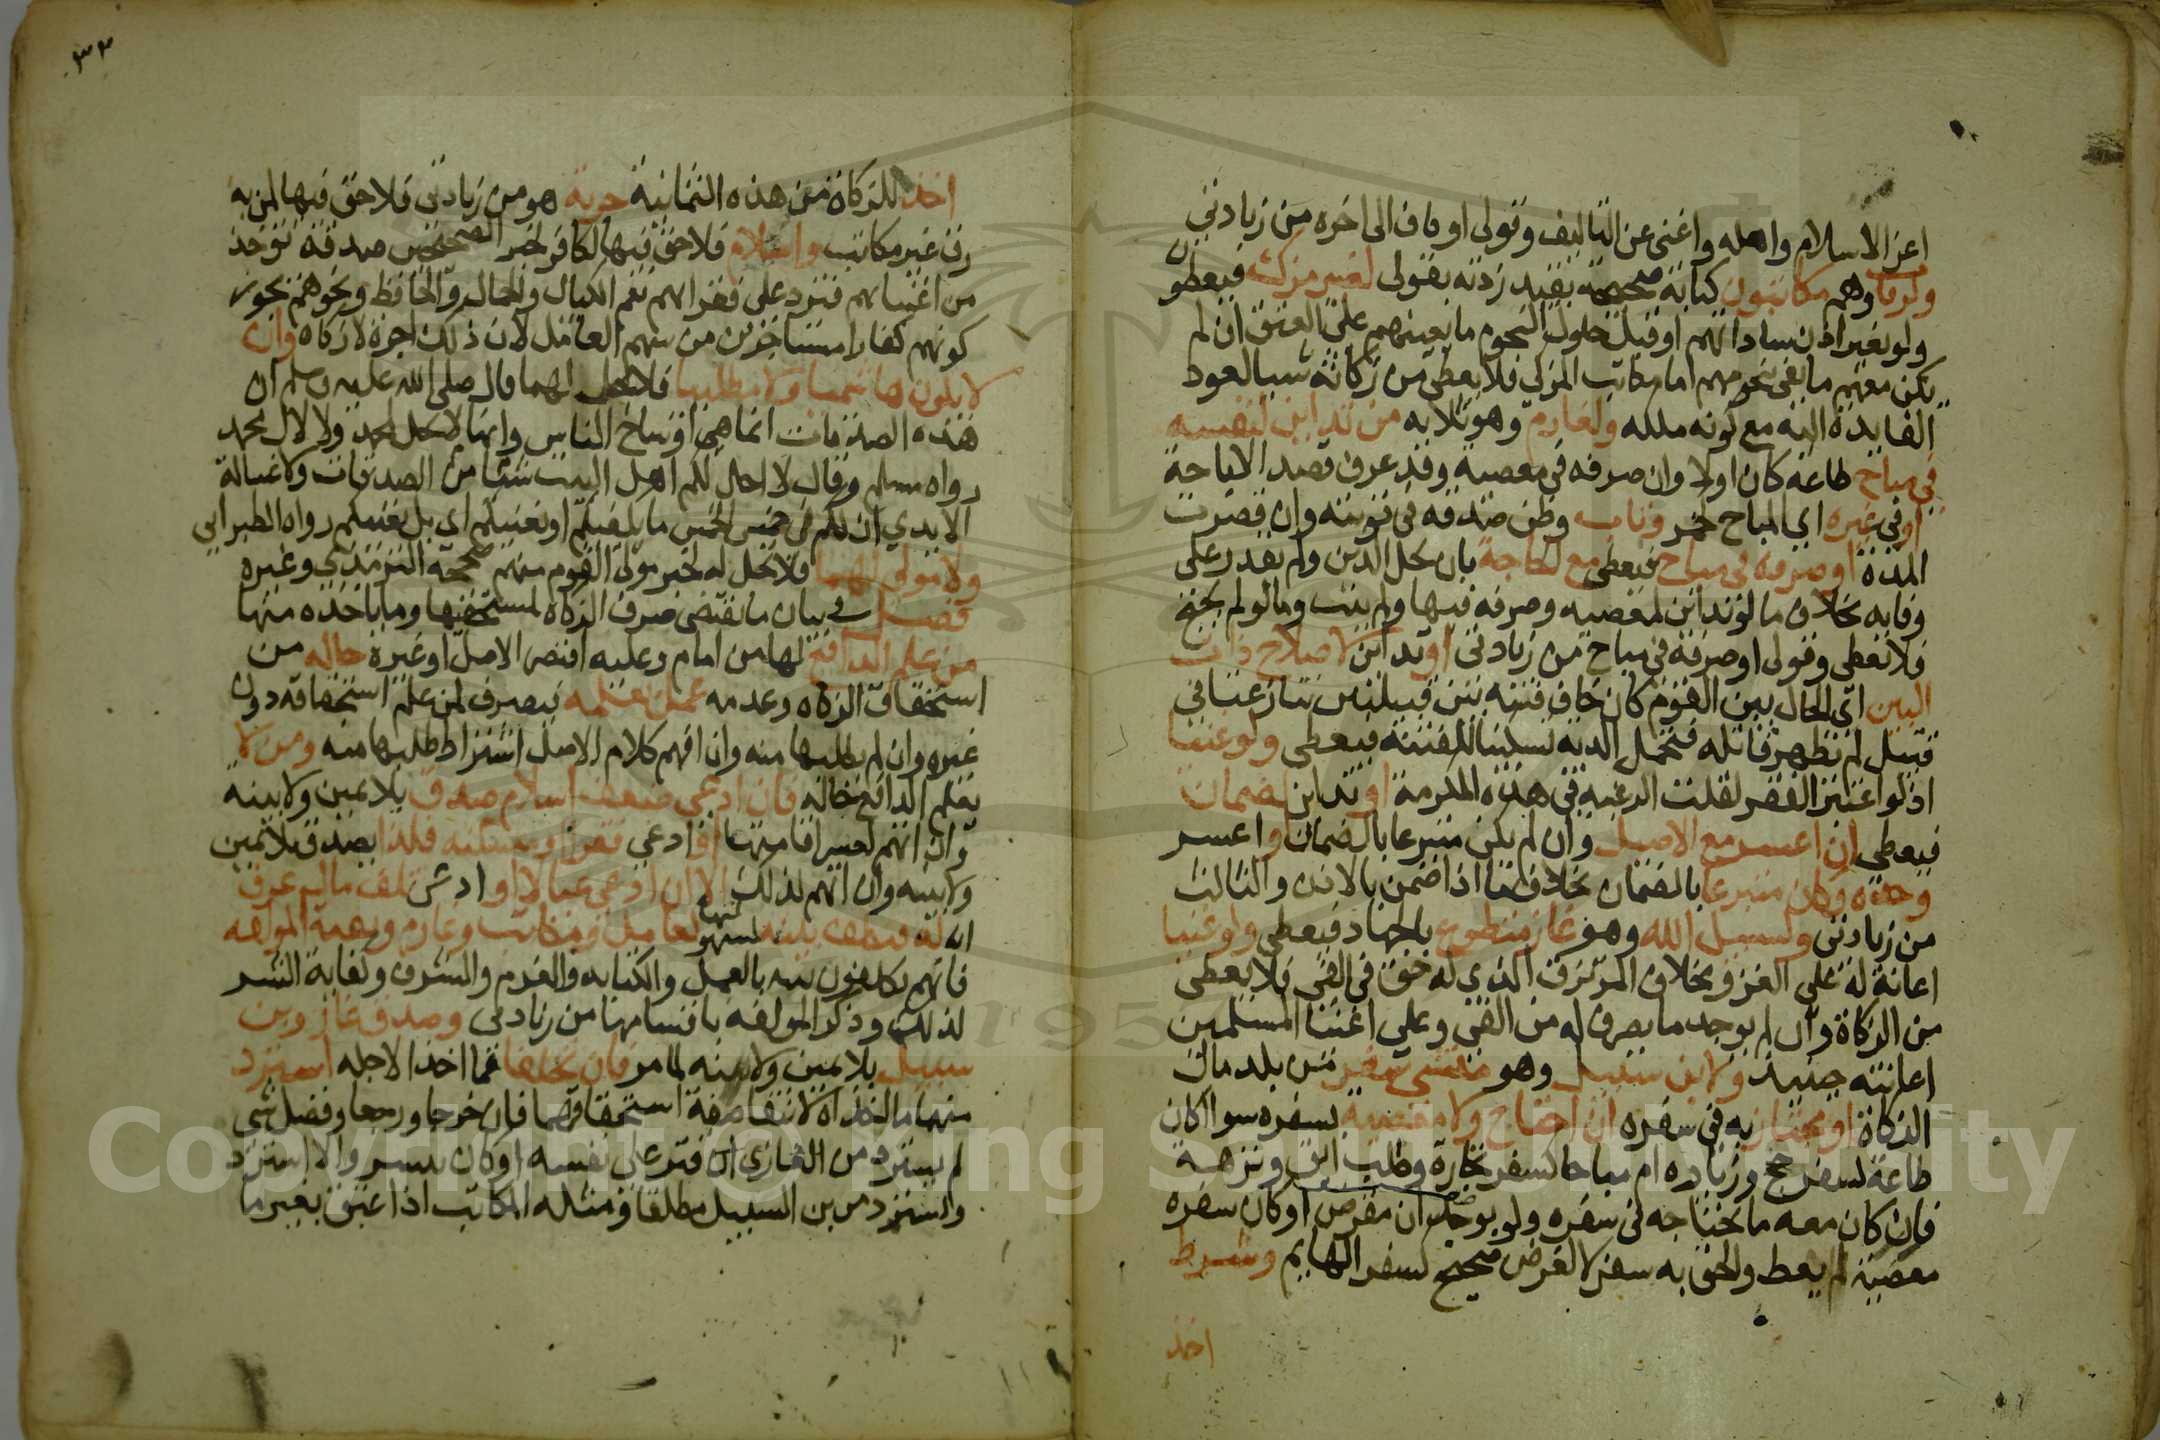 اعز الاسلام واهله واغنى عن التاليف وقولى او مافى الى اخره من زيادتى
ولرقاب وهم مكاتبون كتابة صحيحة بقيد زدته بقولى لغير مزك فيعطون
ولو بغير اذن ساداتهم او قبل حلول النجوم ما يعينهم على العتق ان لم
يكن معهم ما يفى بنجومهم اما مكاتب المزكى فلا يعطى من زكاته شيا لعود
الفايدة اليه مع كونه ملكه ولغارم وهو ثلاثة من تداين لنفسه
في مباح طاعة كان اولا وان صرفه في معصية وقد عرف قصد الاباحة
او في غيره اي المباح كخمر وتاب وظن صدقه في توبته وان قصرت
المدة او صرفه في مباح فيعطى مع الحاجة بان يحل الدين ولم يقدر على
وفايه بخلاف ما لو تداين لمعصية وصرفه فيها ولم يتب وما لو لم يحتج
فلا يعطى وقولى او صرفه في مباح من زيادتى او تداين لاصلاح ذات
البين اي الحال بين القوم كان خاف فتنة بين قبيلتين تنازعتا في
قتيل لم يظهر قاتله فتحمل الدية تسكينا للفتنة فيعطى ولو غنيا
اذ لو اعتبر الفقر لقلت الرغبة في هذه المكرمة او تداين لضمان
فيعطى ان اعسر مع الاصيل وان لم يكن متبرعا بالضمان او اعسر
وحده وكان متبرعا بالضمان بخلاف ما اذا ضمن بالاذن والثالث
من زيادتى ولسبيل الله وهو غاز متطوع بالجهاد فيعطى ولو غنيا
اعانة له على الغزو بخلاف المرتزق الذي له حق في الفى فلا يعطى
من الزكاة وان لم يوجد ما يصرف له من الفى وعلى اغنيا المسلمين
اعانته حينيذ ولابن سبيل وهو منشئ سفر من بلد مال
الزكاة او مجتاز به في سفره ان احتاج ولا معصية بسفره سوا كان
طاعة كسفر حج وزيارة ام مباحا كسفر تجارة وطلب ابق ونزهة
فان كان معه ما يحتاجه في سفره ولو بوجدان مقرض او كان سفره
معصية لم يعط والحق به سفر لا لغرض صحيح كسفر الهايم وشرط
اخذ
٣٣
اخذ للزكاة من هذه الثمانية حرية هو من زيادتى فلا حق فيها لمن به
رق غير مكاتب واسلام فلا حق فيها لكافر لخبر الصحيحين صدقة توخذ
من اغنيائهم فترد على فقرائهم نعم الكيال والحمال والحافظ ونحوهم يجوز
كونهم كفارا مستاجرين من سهم العامل لان ذلك اجرة لا زكاة وان
لا يكون هاشميا ولا مطلبيا فلا تحل لهما قال صلى الله عليه وسلم ان
هذه الصدقات انما هي اوساخ الناس وانها لا تحل لمحمد ولا لال محمد
رواه مسلم وقال لا احل لكم اهل البيت شيا من الصدقات ولا غسالة
الايدي ان لكم في خمس الخمس ما يكفيكم او يغنيكم اي بل يغنيكم رواه الطبرانى
ولا مولى لهما فلا تحل له لخبر مولى القوم منهم صححه الترمذي وغيره
فصل في بيان ما يقتضى صرف الزكاة لمستحقيها وما ياخذه منها
من علم الدافع لها من امام وعليه اقتصر الاصل او غيره حاله من
استحقاق الزكاة وعدمه عمل بعلمه فيصرف لمن علم استحقاقه دون
غيره وان لم يطلبها منه وان افهم كلام الاصل اشتراط طلبها منه ومن لا
يعلم الدافع حاله فان ادعى ضعف اسلام صدق بلا يمين ولا بينة
وان اتهم لعسر اقامتها او ادعى فقرا او مسكنة فكذا يصدق بلا يمين
ولا بينة وان اتهم لذلك الا ان ادعى عيالا او ادعى تلف مال عرف
انه له فيكلف بينة لسهولتها كعامل ومكاتب وغارم وبقية المولفة
فانهم يكلفون بينة بالعمل والكتابة والغرم والشرف وكفاية الشر
لذلك وذكر المولفة باقسامها من زيادتى وصدق غاز وابن
سبيل بلا يمين ولا بينة لما مر فان تخلفا عما اخذا لاجله استرد
منهما ما اخذاه لانتفا صفة استحقاقهما فان خرجا ورجعا وفضل شى
لم يسترد من الغازى ان قتر على نفسه او كان يسيرا والا استرد
واسترد من ابن السبيل مطلقا ومثله المكاتب اذا اعتق بغير ما